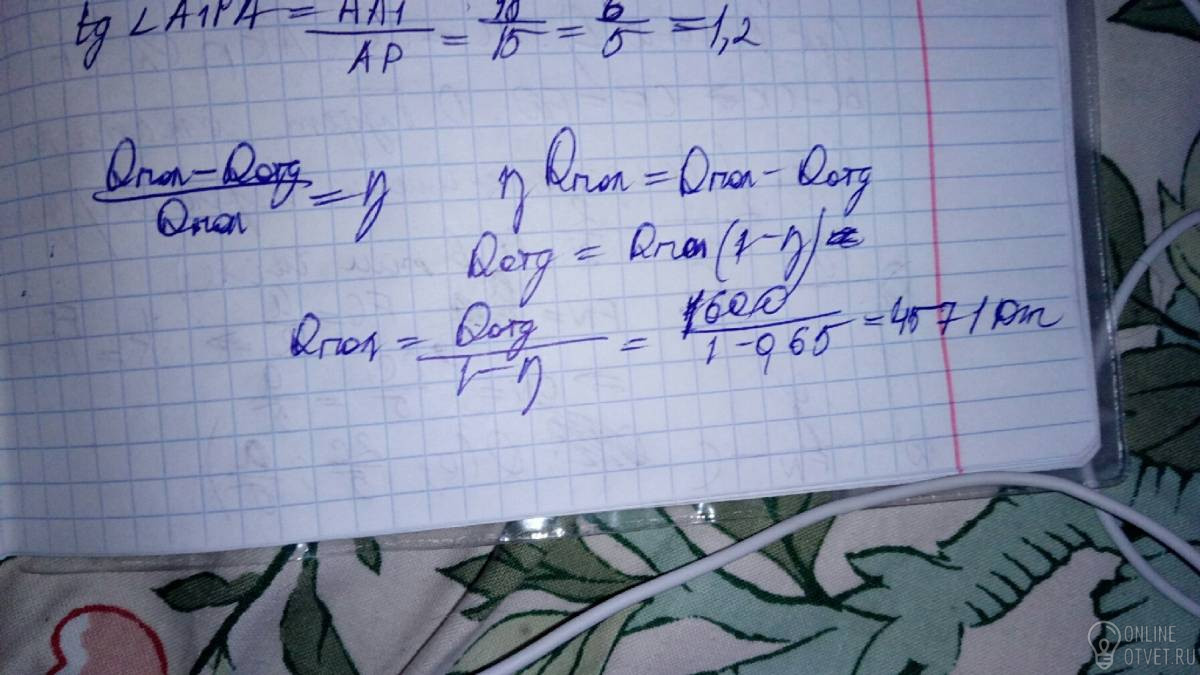 tg ∠A1PA = AA1/AP = /15 = 6/5 = 1,2
(Qпол − Qотд)/Qпол = η
η Qпол = Qпол − Qотд
Qотд = Qпол (1−η)
Qпол = Qотд/(1−η) = 1600/(1−0,65) = 4571 Дж
ONLINE
OTVET.RU